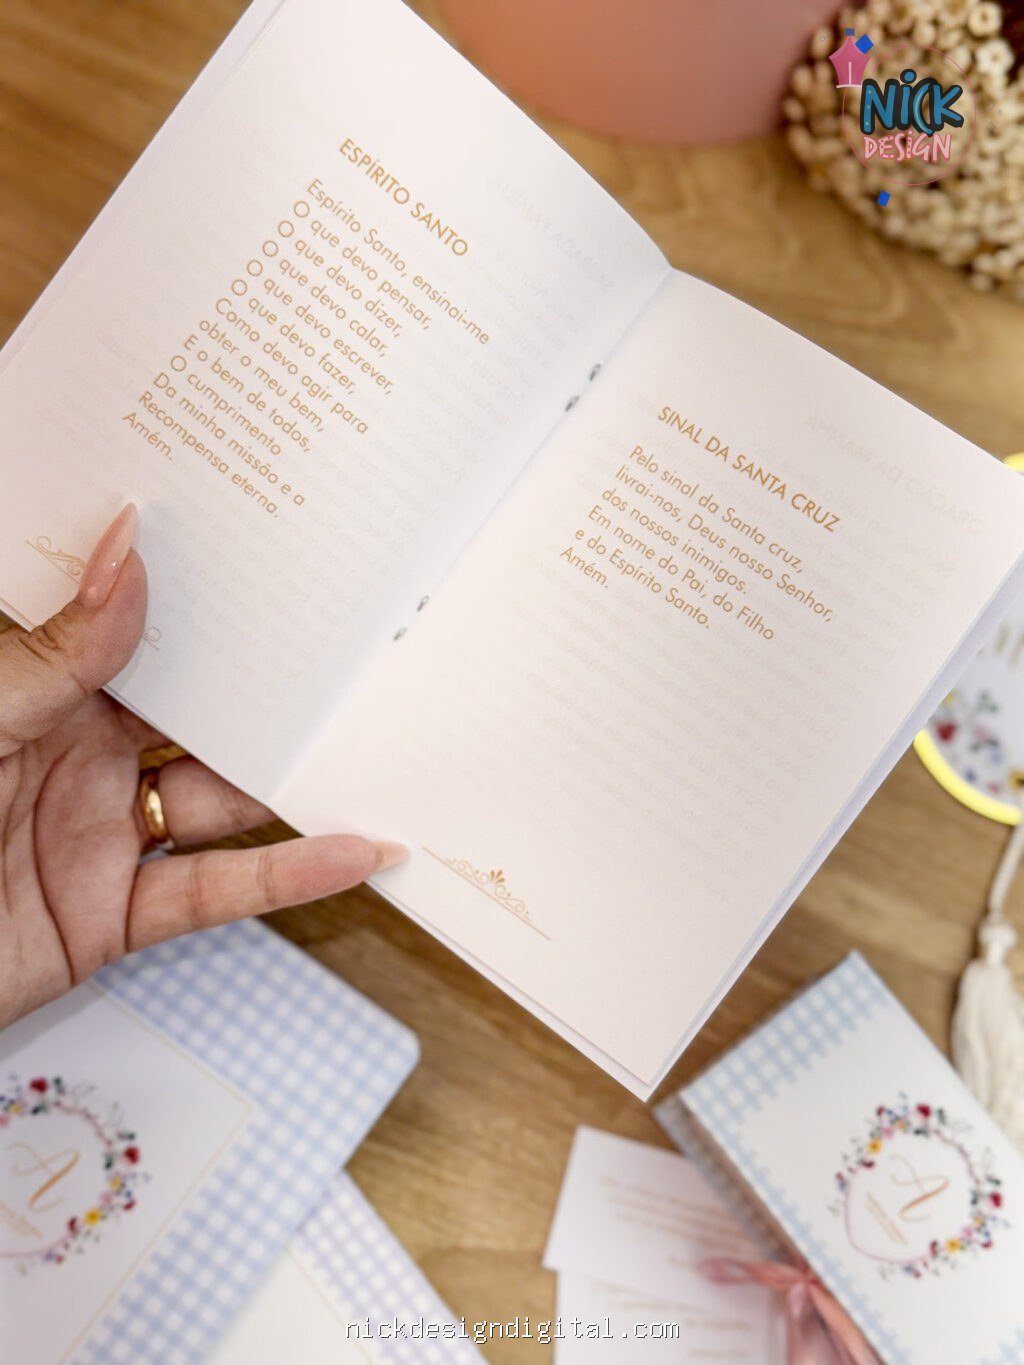 ESPÍRITO SANTO
Espírito Santo, ensinai-me
O que devo pensar,
O que devo dizer,
O que devo calar,
O que devo escrever,
O que devo fazer,
Como devo agir para
obter o meu bem,
E o bem de todos,
O cumprimento
Da minha missão e a
Recompensa eterna.
Amém.
SINAL DA SANTA CRUZ
Pelo sinal da Santa cruz,
livrai-nos, Deus nosso Senhor,
dos nossos inimigos.
Em nome do Pai, do Filho
e do Espírito Santo.
Amém.
NICK
DESIGN
A
A
nickdesigndigital.com